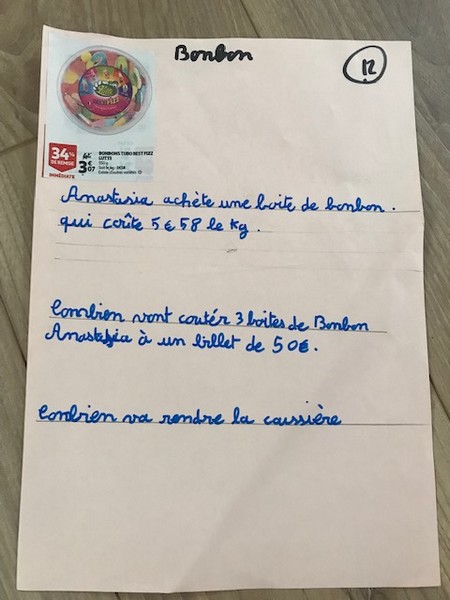 Bonbon
12
34%
DE REMISE
IMMÉDIATE
3€07
BONBONS TUBO BEST FIZZ
LUTTI
Anastasia achète une boite de bonbon.
qui coûte 5€58 le kg.
Combien vont coutér 3 boites de Bonbon
Anastasia à un billet de 50€.
Combien va rendre la caissière